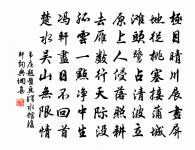 極目晴川展畫屏
地從桃塞接蒲城
灘頭鷺占清波立
原上人侵落照耕
去雁數行天際沒
孤雲一點淨中生
馮軒盡日不回首
楚水吳山無限情
韋庄題盤豆驛水館後
軒詞典網